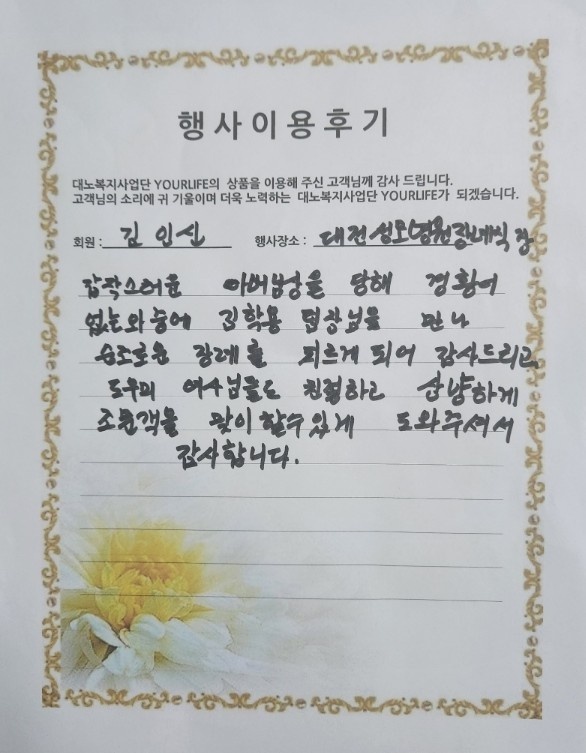 행사이용후기
대노복지사업단 YOURLIFE의 상품을 이용해 주신 고객님께 감사 드립니다.
고객님의 소리에 귀 기울이며 더욱 노력하는 대노복지사업단 YOURLIFE가 되겠습니다.
회원 : 김인신 행사장소 : 대전성모병원장례식장
갑작스러운 아버님상을 당해 경황이
없는와중에 김학용 팀장님을 만나
순조로운 장례를 치르게 되어 감사드리고
도우미 여사님들도 친절하고 상냥하게
조문객을 맞이할수있게 도와주셔서
감사합니다.